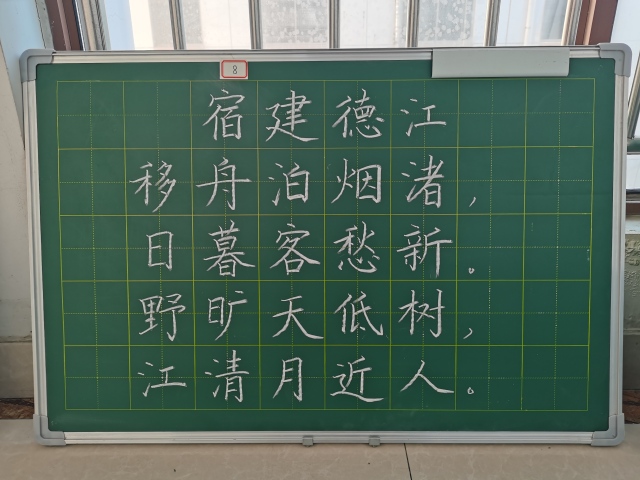 8
宿建德江
移舟泊烟渚，
日暮客愁新。
野旷天低树，
江清月近人。